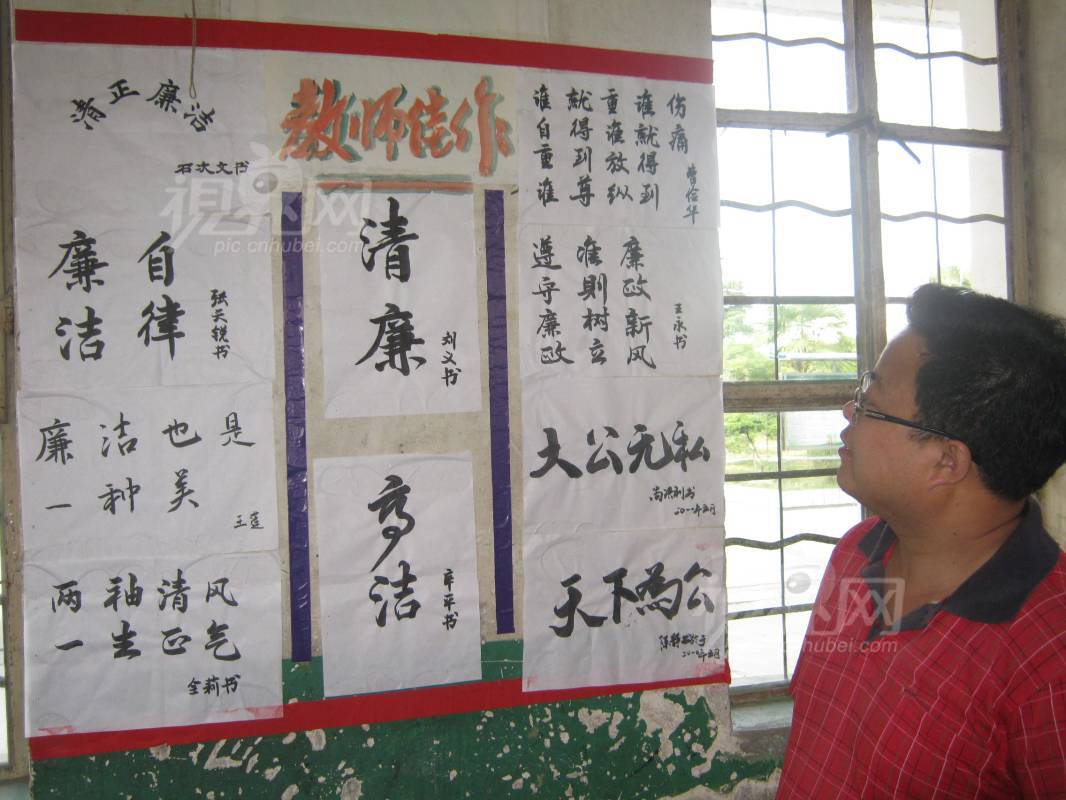 教师佳作
清正廉洁
石次文书
廉洁
自律
张天锐书
廉洁也是
一种美
王莲
两袖清风
一生正气
全莉书
清廉
刘义书
高洁
辛平书
谁自重谁
就得到尊
重谁放纵
谁就得到
伤痛
曹俭华
遵守廉政
准则树立
廉政新风
王永书
大公无私
尚洪利书
天下為公
視界网
pic.cnhubei.com